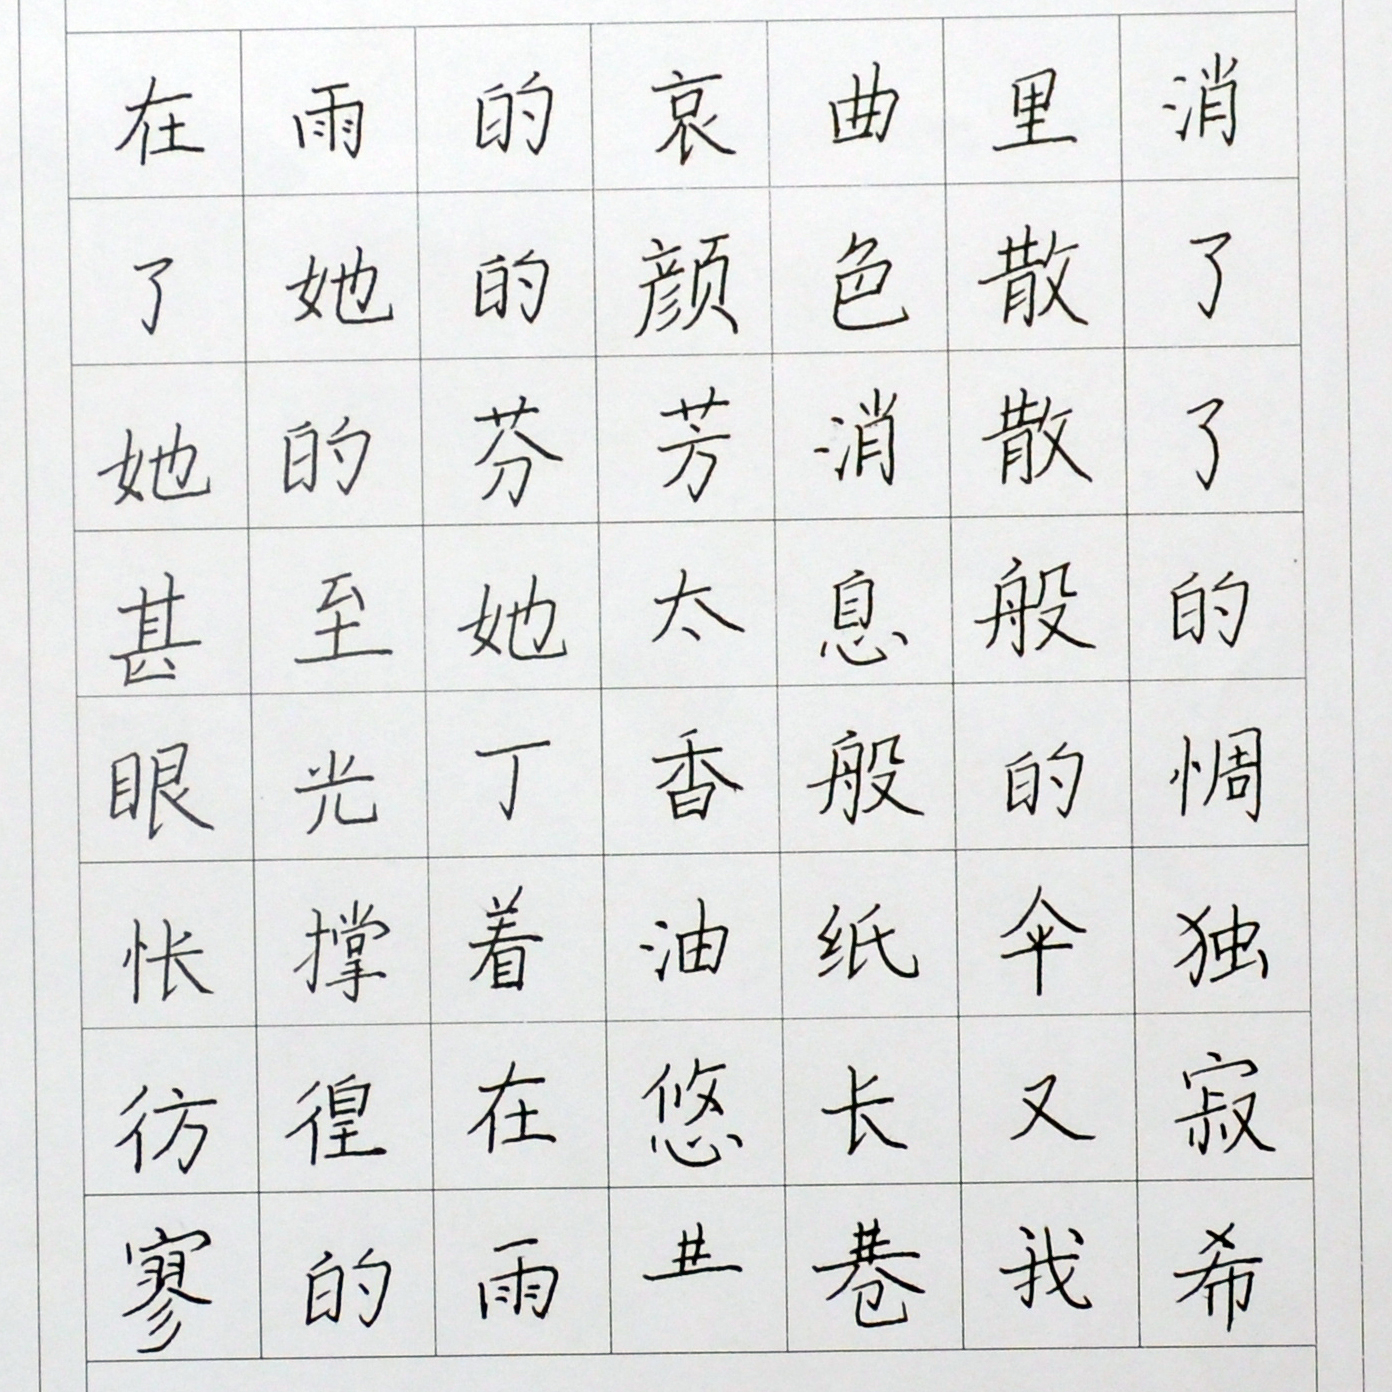 在雨的哀曲里消
了她的颜色散了
她的芬芳消散了
甚至她太息般的
眼光丁香般的惆
怅撑着油纸伞独
彷徨在悠长又寂
寥的雨巷我希